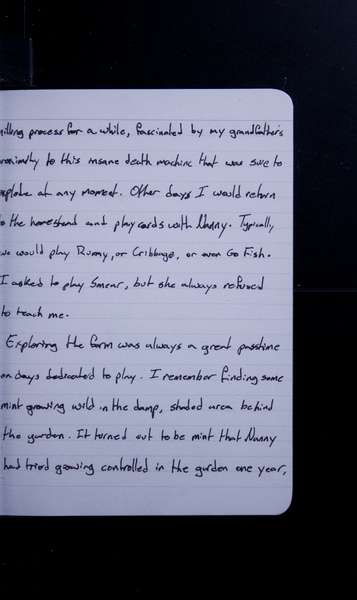 milling process for a while, fascinated by my grandfather's
proximity to this insane death machine that was sure to
explode at any moment. Other days I would return
to the homestead and play cards with Nanny. Typically,
we would play Rummy, or Cribbage, or even Go Fish.
I asked to play Smear, but she always refused
to teach me.
Exploring the farm was always a great passtime
on days dedicated to play. I remember finding some
mint growing wild in the damp, shaded area behind
the garden. It turned out to be mint that Nanny
had tried growing controlled in the garden one year,